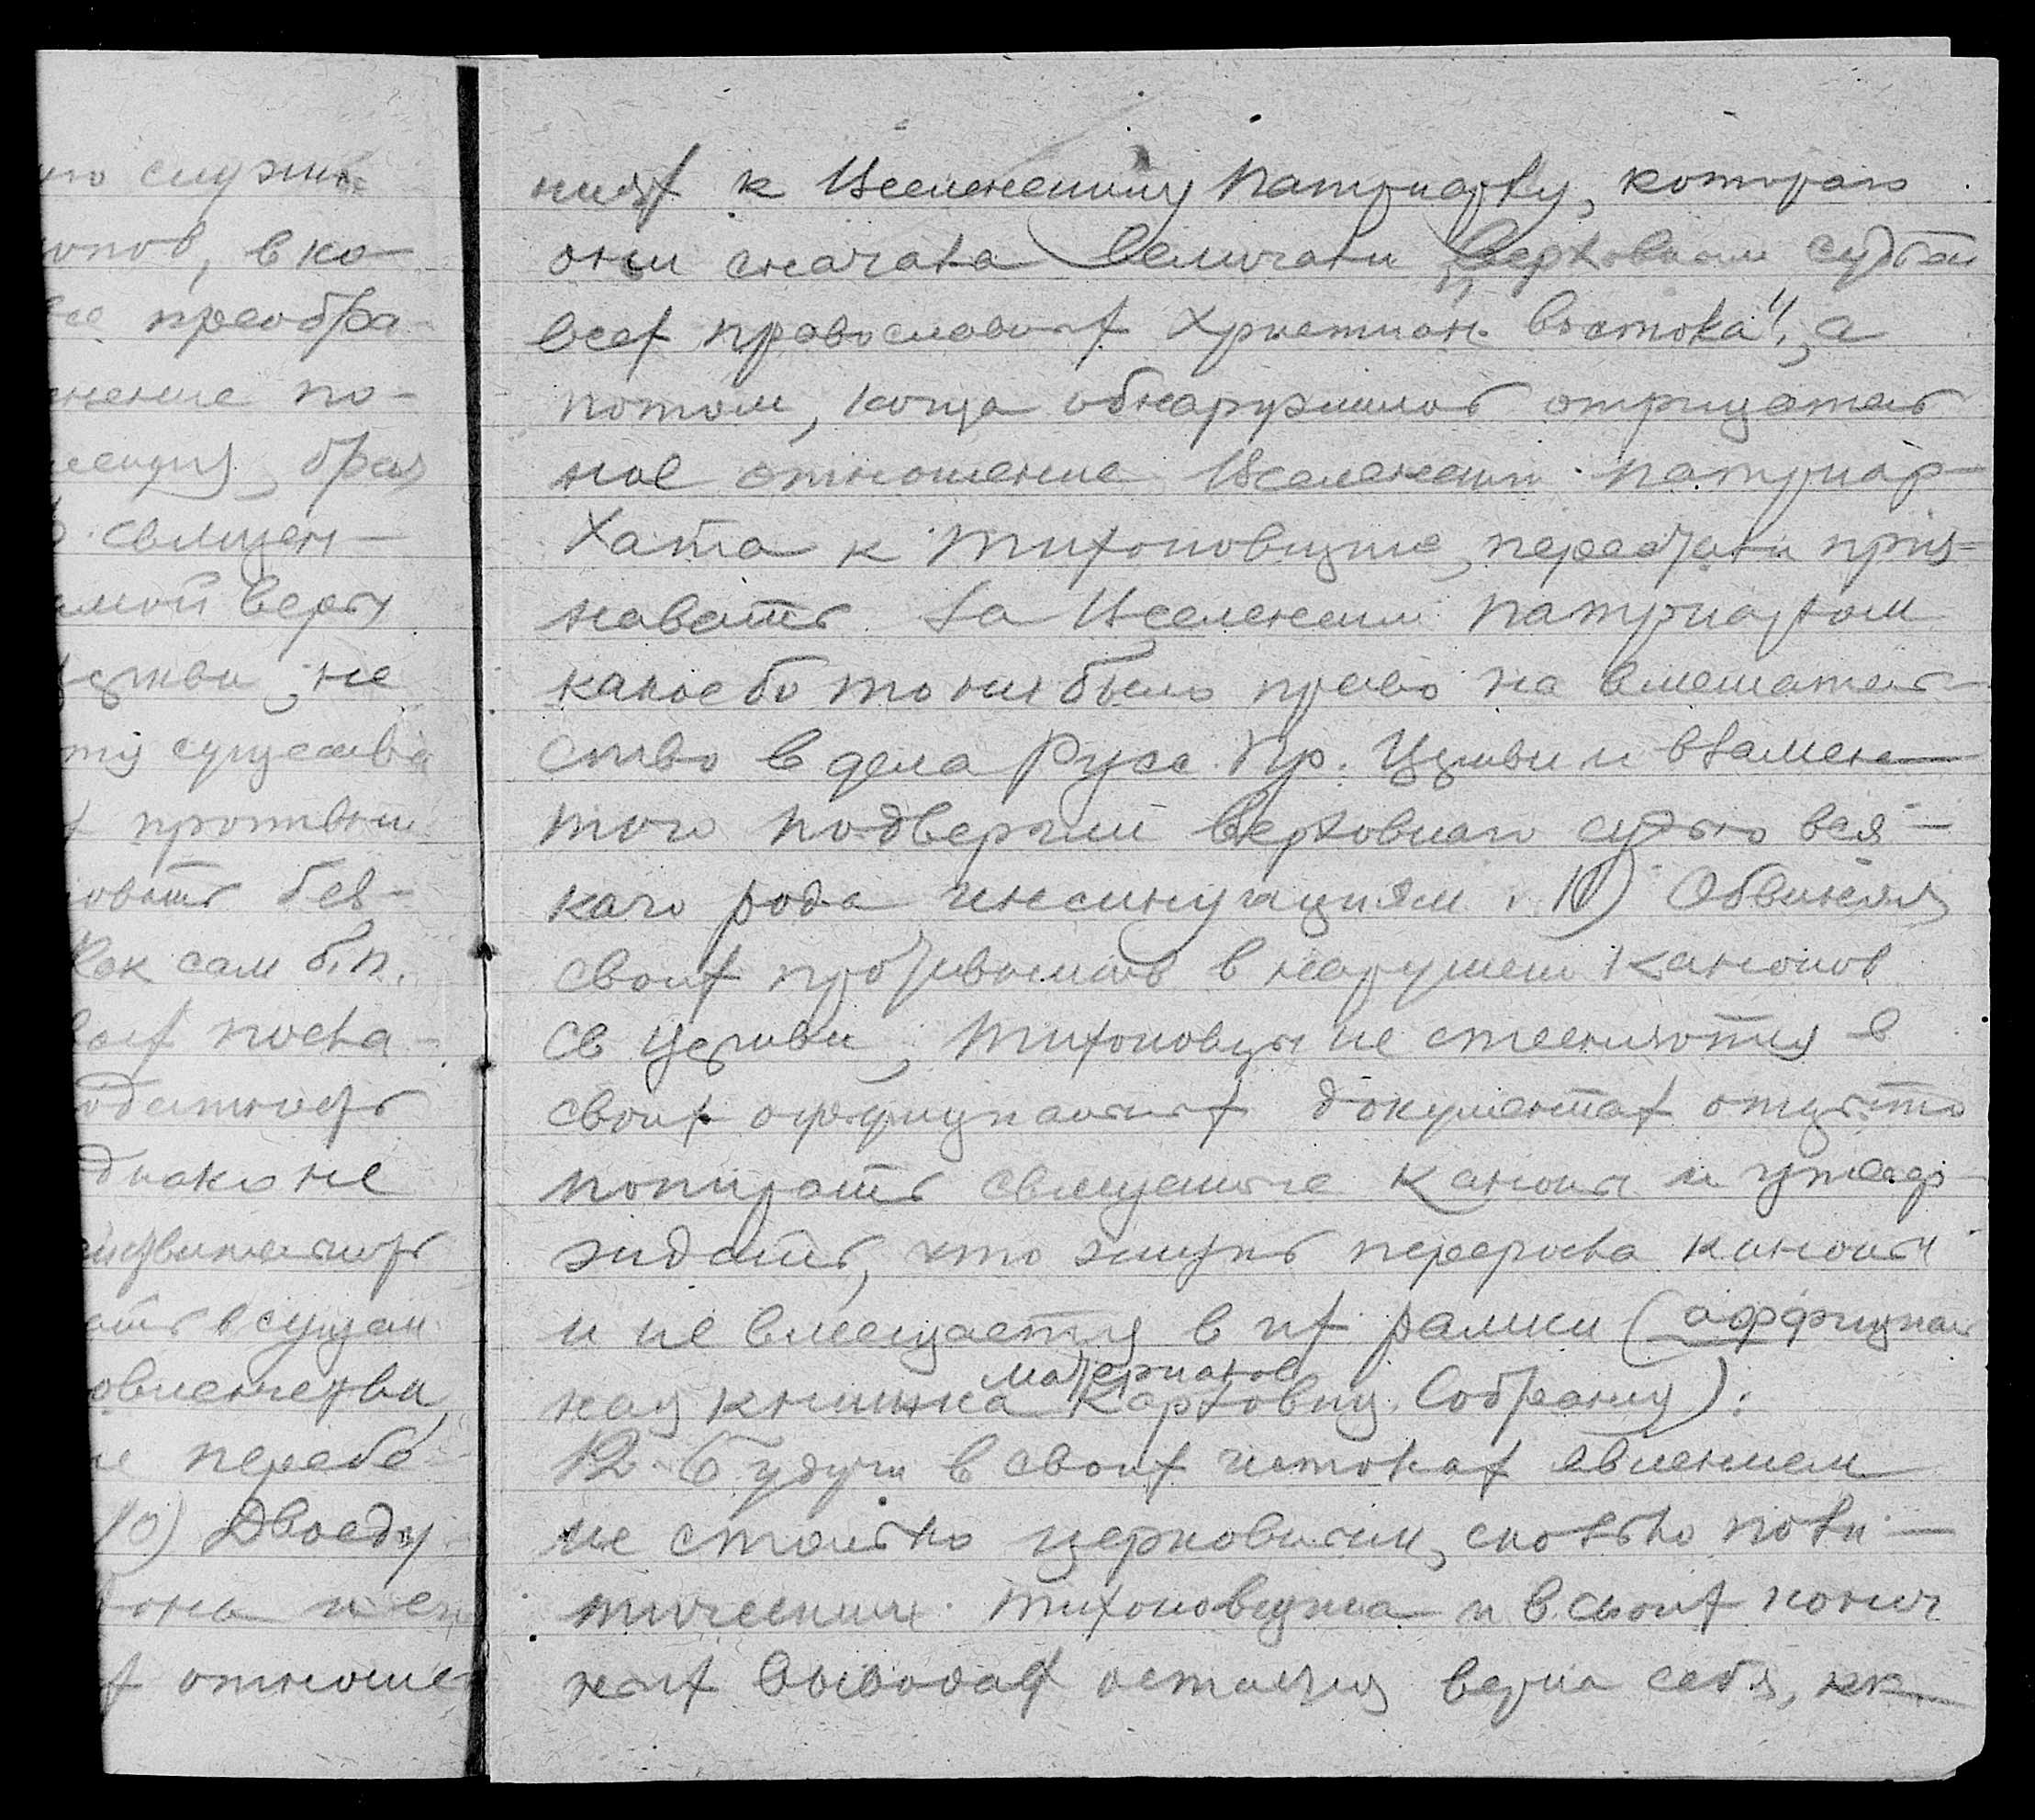 но служи
нонов, в ко
все преобра-
нение по-
лекция, брал
о. священ-
амой веры
Церкви, не
ту существа
х противни
новать без-
Как сам б. п.
воих посла-
однако не
ать в сущн
овленчества,
не перебе-
10) Двоеду
х отноше-
ниях к Вселенскому Патриарху, котораго
они сначала величали „Верховным судьей
всех православных христиан востока", а
потом, когда обнаружилось отрицатель
ное отношение Вселенского патриар-
хата к тихоновщине, перестали приз-
навать за Вселенским Патриархом
какое бы то ни было право на вмешатель-
ство в дела Русс. Пр. Церкви и взамен
того подвергли верховнаго судью вся-
каго рода инсинуациям. 11) Обвиняя
своих противников в нарушении канонов
св Церкви, тихоновцы не стесняются в
своих оффициальных документах открыто
попирать священные каноны и утвер-
ждать, что жизнь переросла каноны
и не вмещается в их рамки (оффициаль
ная книжка материалов Карловиц. Собрания).
12. Будучи в своих истоках явлением
не столько церковным, сколько поли-
тическим тихоновщина и в своих конеч
ных выводах осталась верна себя, как